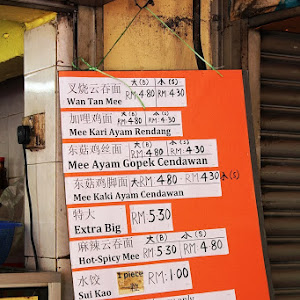 叉烧云吞面 大(B) 小(S)
Wan Tan Mee RM 4.80 RM 4.30
加哩鸡面 大(B) 小(S)
Mee Kari Ayam Rendang RM 4.80 RM 4.30
东菇鸡丝面 大(B) 小(S)
RM 4.80 RM 4.30
Mee Ayam Gopek Cendawan
东菇鸡脚面 大 RM 4.80 - RM 4.30 小(S)
Mee Kaki Ayam Cendawan
特大
Extra Big RM 5.30
麻辣云吞面 大(B) 小(S)
Hot-Spicy Mee RM 5.30 RM 4.80
水饺 1 piece
Sui Kao RM:1.00
only